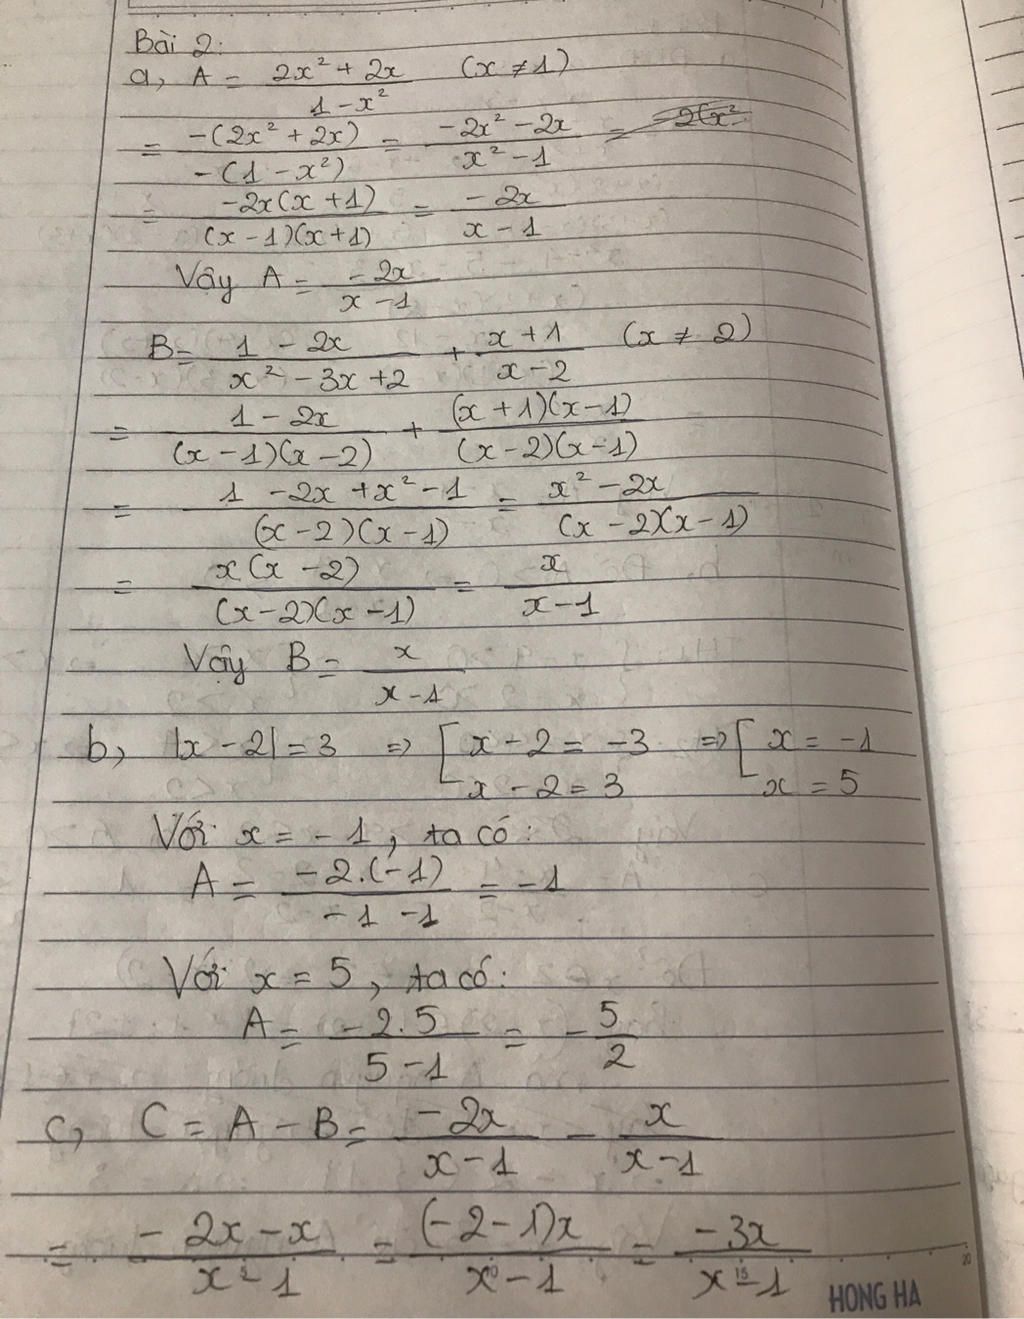 Bài 2:
a, A = (2x² + 2x)/(1 - x²) (x ≠ 1)
= (-(2x² + 2x))/(-(1 - x²)) = (-2x² - 2x)/(x² - 1) =
= (-2x(x + 1))/((x - 1)(x + 1)) = (-2x)/(x - 1)
Vậy A = (-2x)/(x - 1)
B = (1 - 2x)/(x² - 3x + 2) + (x + 1)/(x - 2) (x ≠ 2)
= (1 - 2x)/((x - 1)(x - 2)) + ((x + 1)(x - 1))/((x - 2)(x - 1))
= (1 - 2x + x² - 1)/((x - 2)(x - 1)) = (x² - 2x)/((x - 2)(x - 1))
= (x(x - 2))/((x - 2)(x - 1)) = x/(x - 1)
Vậy B = x/(x - 1)
b, |x - 2| = 3 => [ x - 2 = -3 => [ x = -1
x - 2 = 3 x = 5
Với x = -1, ta có:
A = (-2.(-1))/(-1 - 1) = -1
Với x = 5, ta có:
A = (-2.5)/(5 - 1) = -5/2
c, C = A - B = (-2x)/(x - 1) - x/(x - 1)
= (-2x - x)/(x - 1) = ((-2 - 1)x)/(x - 1) = (-3x)/(x - 1)
5 10 15 20
HONG HA